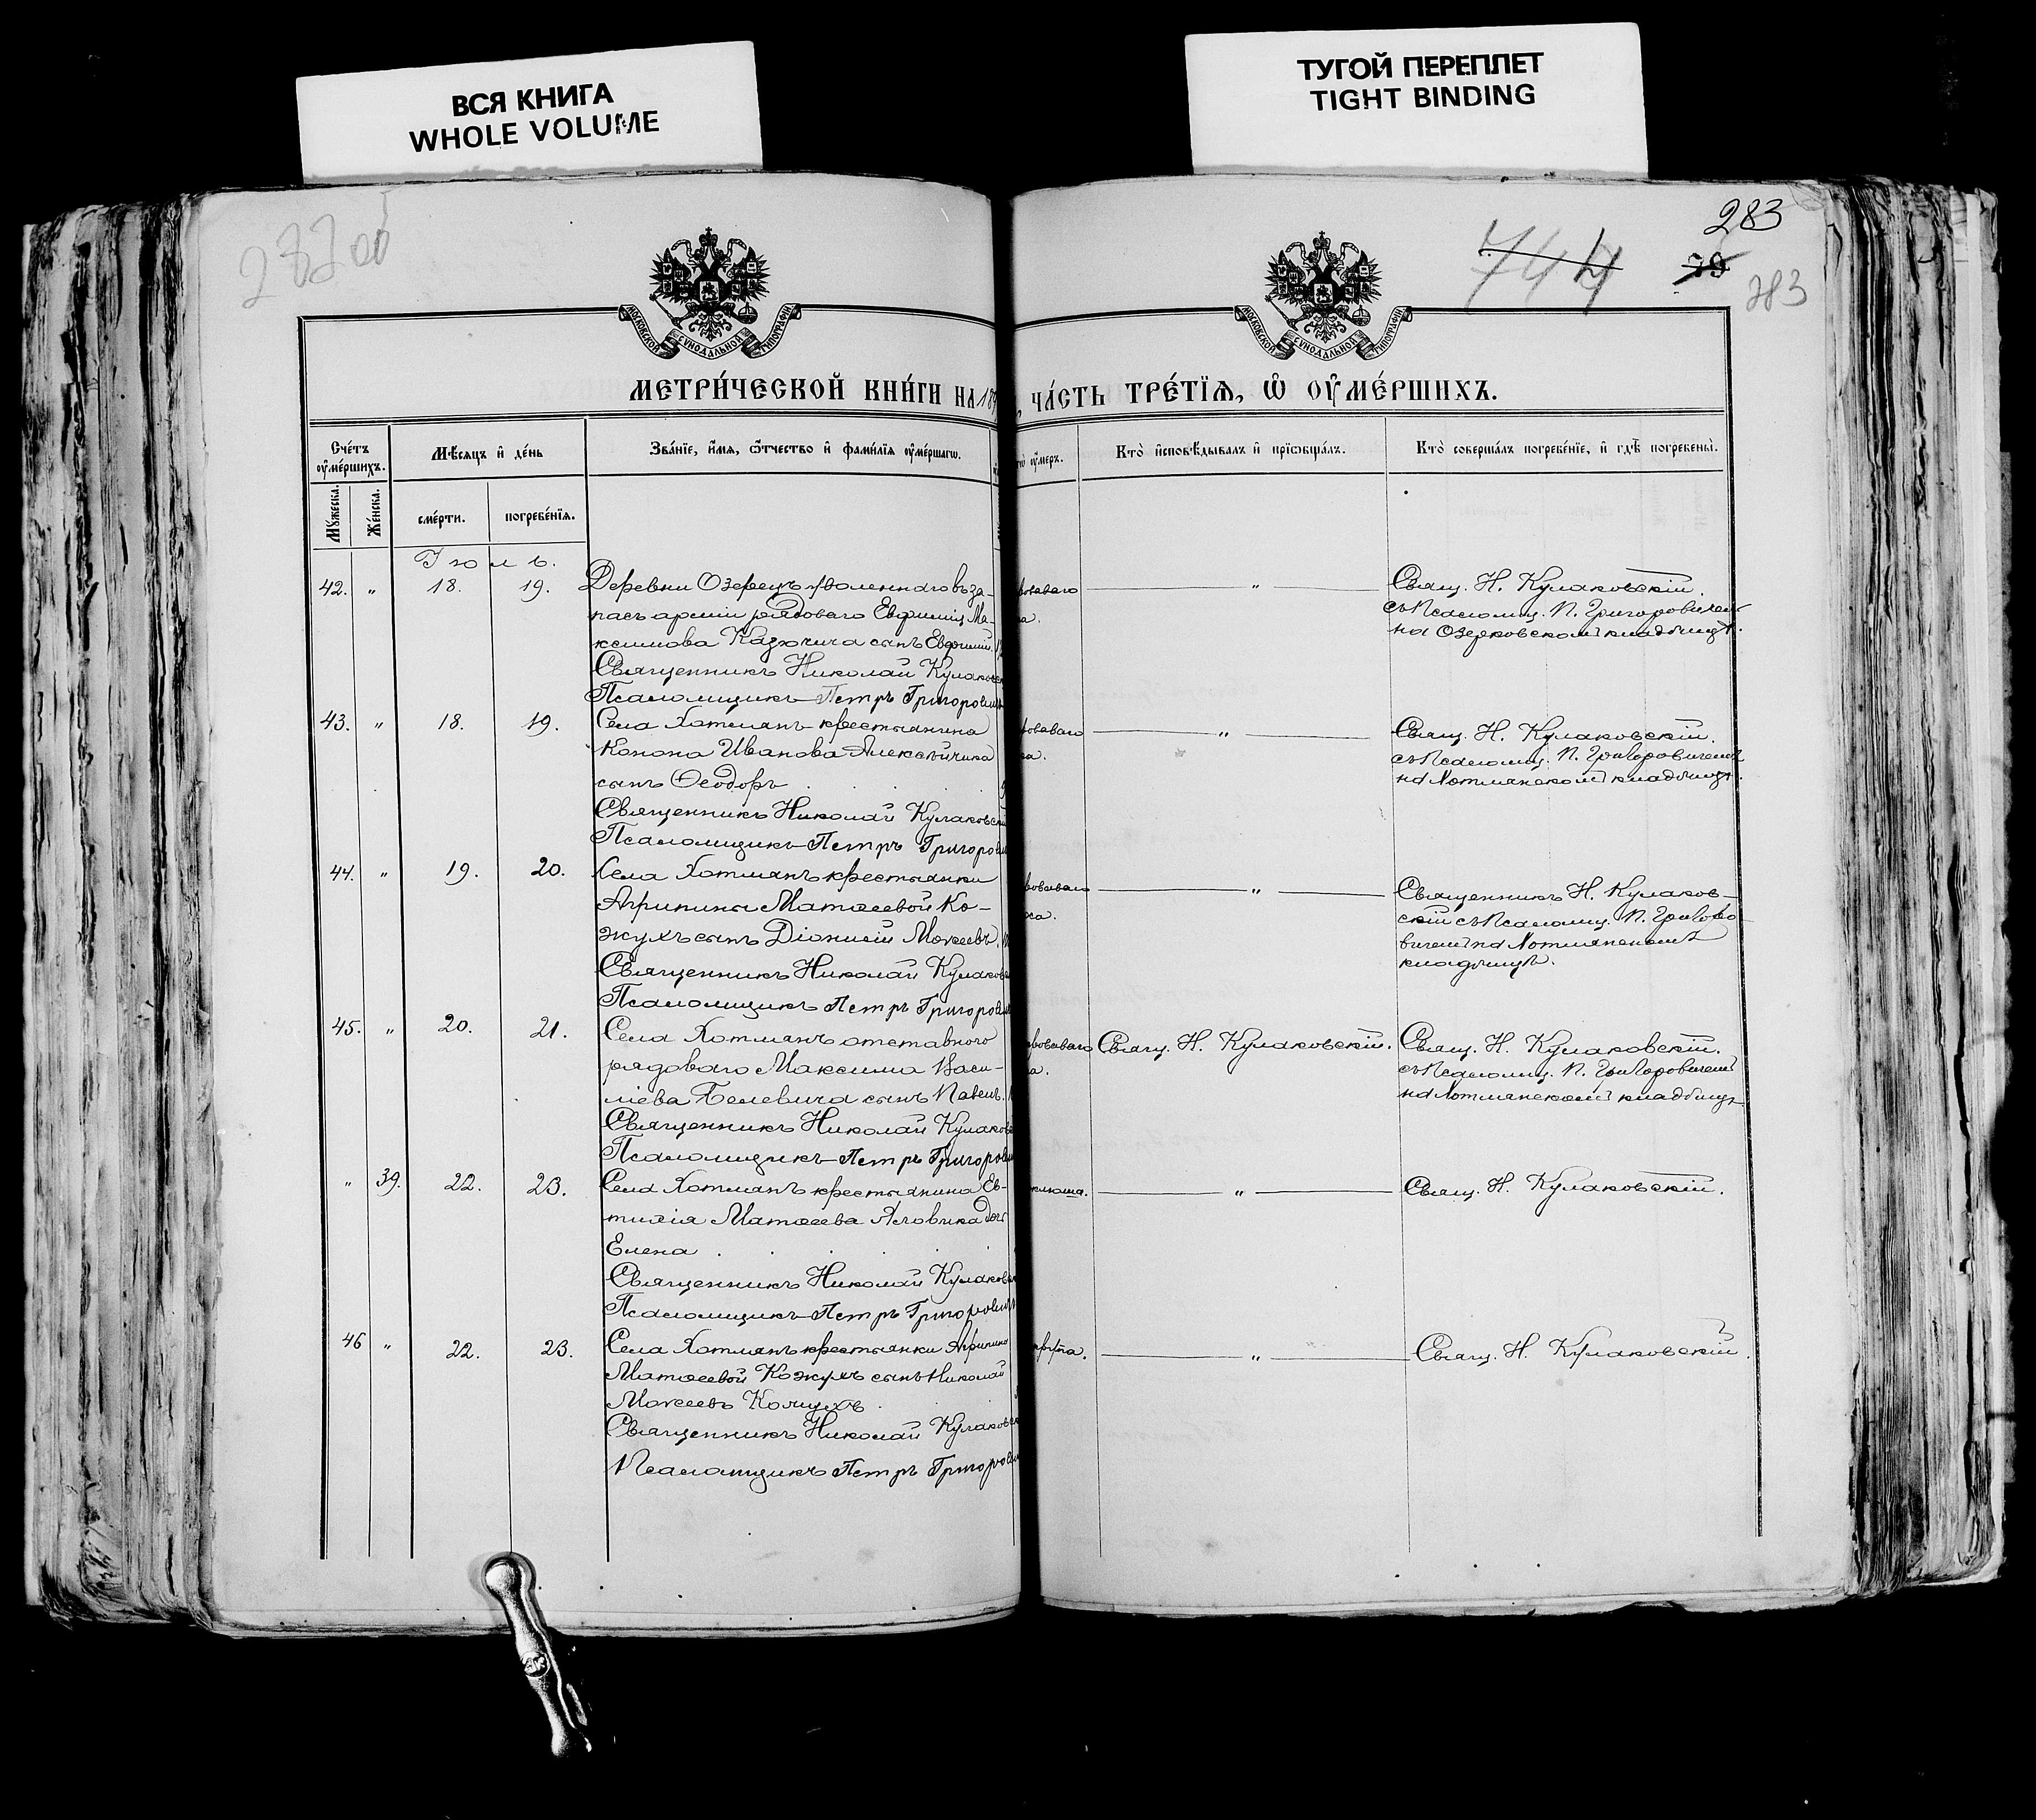 ВСЯ КНИГА
WHOLE VOLUME
ТУГОЙ ПЕРЕПЛЕТ
TIGHT BINDING
283
744
39
283
МОСКОВСКОЙ СѴНОДАЛЬНОЙ ТИПОГРАФІИ
МОСКОВСКОЙ СѴНОДАЛЬНОЙ ТИПОГРАФІИ
МЕТРИ́ЧЕСКОЙ КНИ́ГИ НА 189
, ЧА́СТЬ ТРЕ́ТІѦ, Ѡ ОУ҆МЕ́РШИХЪ.
Сче́тъ оу҆ме́ршихъ.
Мѣ́сяцъ и҆ де́нь
Зва́нїе, и҆́мя, ѻ҆́тчество и҆ фами́лїя оу҆ме́ршагѡ.
оу҆́меръ.
Кто̀ и҆сповѣ́дывалъ и҆ прїѡбща́лъ.
Кто̀ соверша́лъ погребе́нїе, и҆ гдѣ̀ погребены̀.
Му́жеска.
Же́нска.
сме́рти.
погребе́нїя.
Іюль.
42. „ 18. 19. Деревни Озерецъ уволеннаго въ за-
пасъ арміи рядоваго Евфимія Ма-
ксимова Казючица сынъ Евфимій.
Священникъ Николай Кулаковск
Псаломщикъ Петръ Григорович
говаваго
а.
„
Свящ. Н. Кулаковскій.
съ Псаломщ. П. Григоровичемъ
на Озерковскомъ кладбищѣ.
43. „ 18. 19. Села Хотлянъ крестьянина
Конона Иванова Алексейчика
сынъ Ѳеодоръ
Священникъ Николай Кулаковскій
Псаломщикъ Петръ Григорови
„
Свящ. Н. Кулаковскій.
съ Псаломщ. П. Григоровичемъ
на Хотлянскомъ кладбищѣ.
44. „ 19. 20. Села Хотлянъ крестьянки
Агрипины Матѳеевой Ко-
жухъ сынъ Діонисій Мокеевъ.
Священникъ Николай Кулаков
Псаломщикъ Петръ Григорови
„
Священникъ Н. Кулаков-
скій съ Псаломщ. П. Григоро-
вичемъ на Хотлянскомъ
кладбищѣ.
45. „ 20. 21. Села Хотлянъ отставного
рядоваго Максима Васи-
ліева Белевича сынъ Павелъ.
Священникъ Николай Кулаков
Псаломщикъ Петръ Григорови
Свящ. Н. Кулаковскій.
Свящ. Н. Кулаковскій.
съ Псаломщ. П. Григоровичемъ
на Хотлянскомъ кладбищѣ
„ 39. 22. 23. Села Хотлянъ крестьянина Ев-
тихія Матѳеева Яловика дочь
Елена
Священникъ Николай Кулаков
Псаломщикъ Петръ Григорович
клюша.
„
Свящ. Н. Кулаковскій.
46 „ 22. 23. Села Хотлянъ крестьянки Агрипины
Матѳеевой Кожухъ сынъ Николай
Мокеевъ Кожухъ
Священникъ Николай Кулаковск
Псаломщикъ Петръ Григорови
„
Свящ. Н. Кулаковскій.